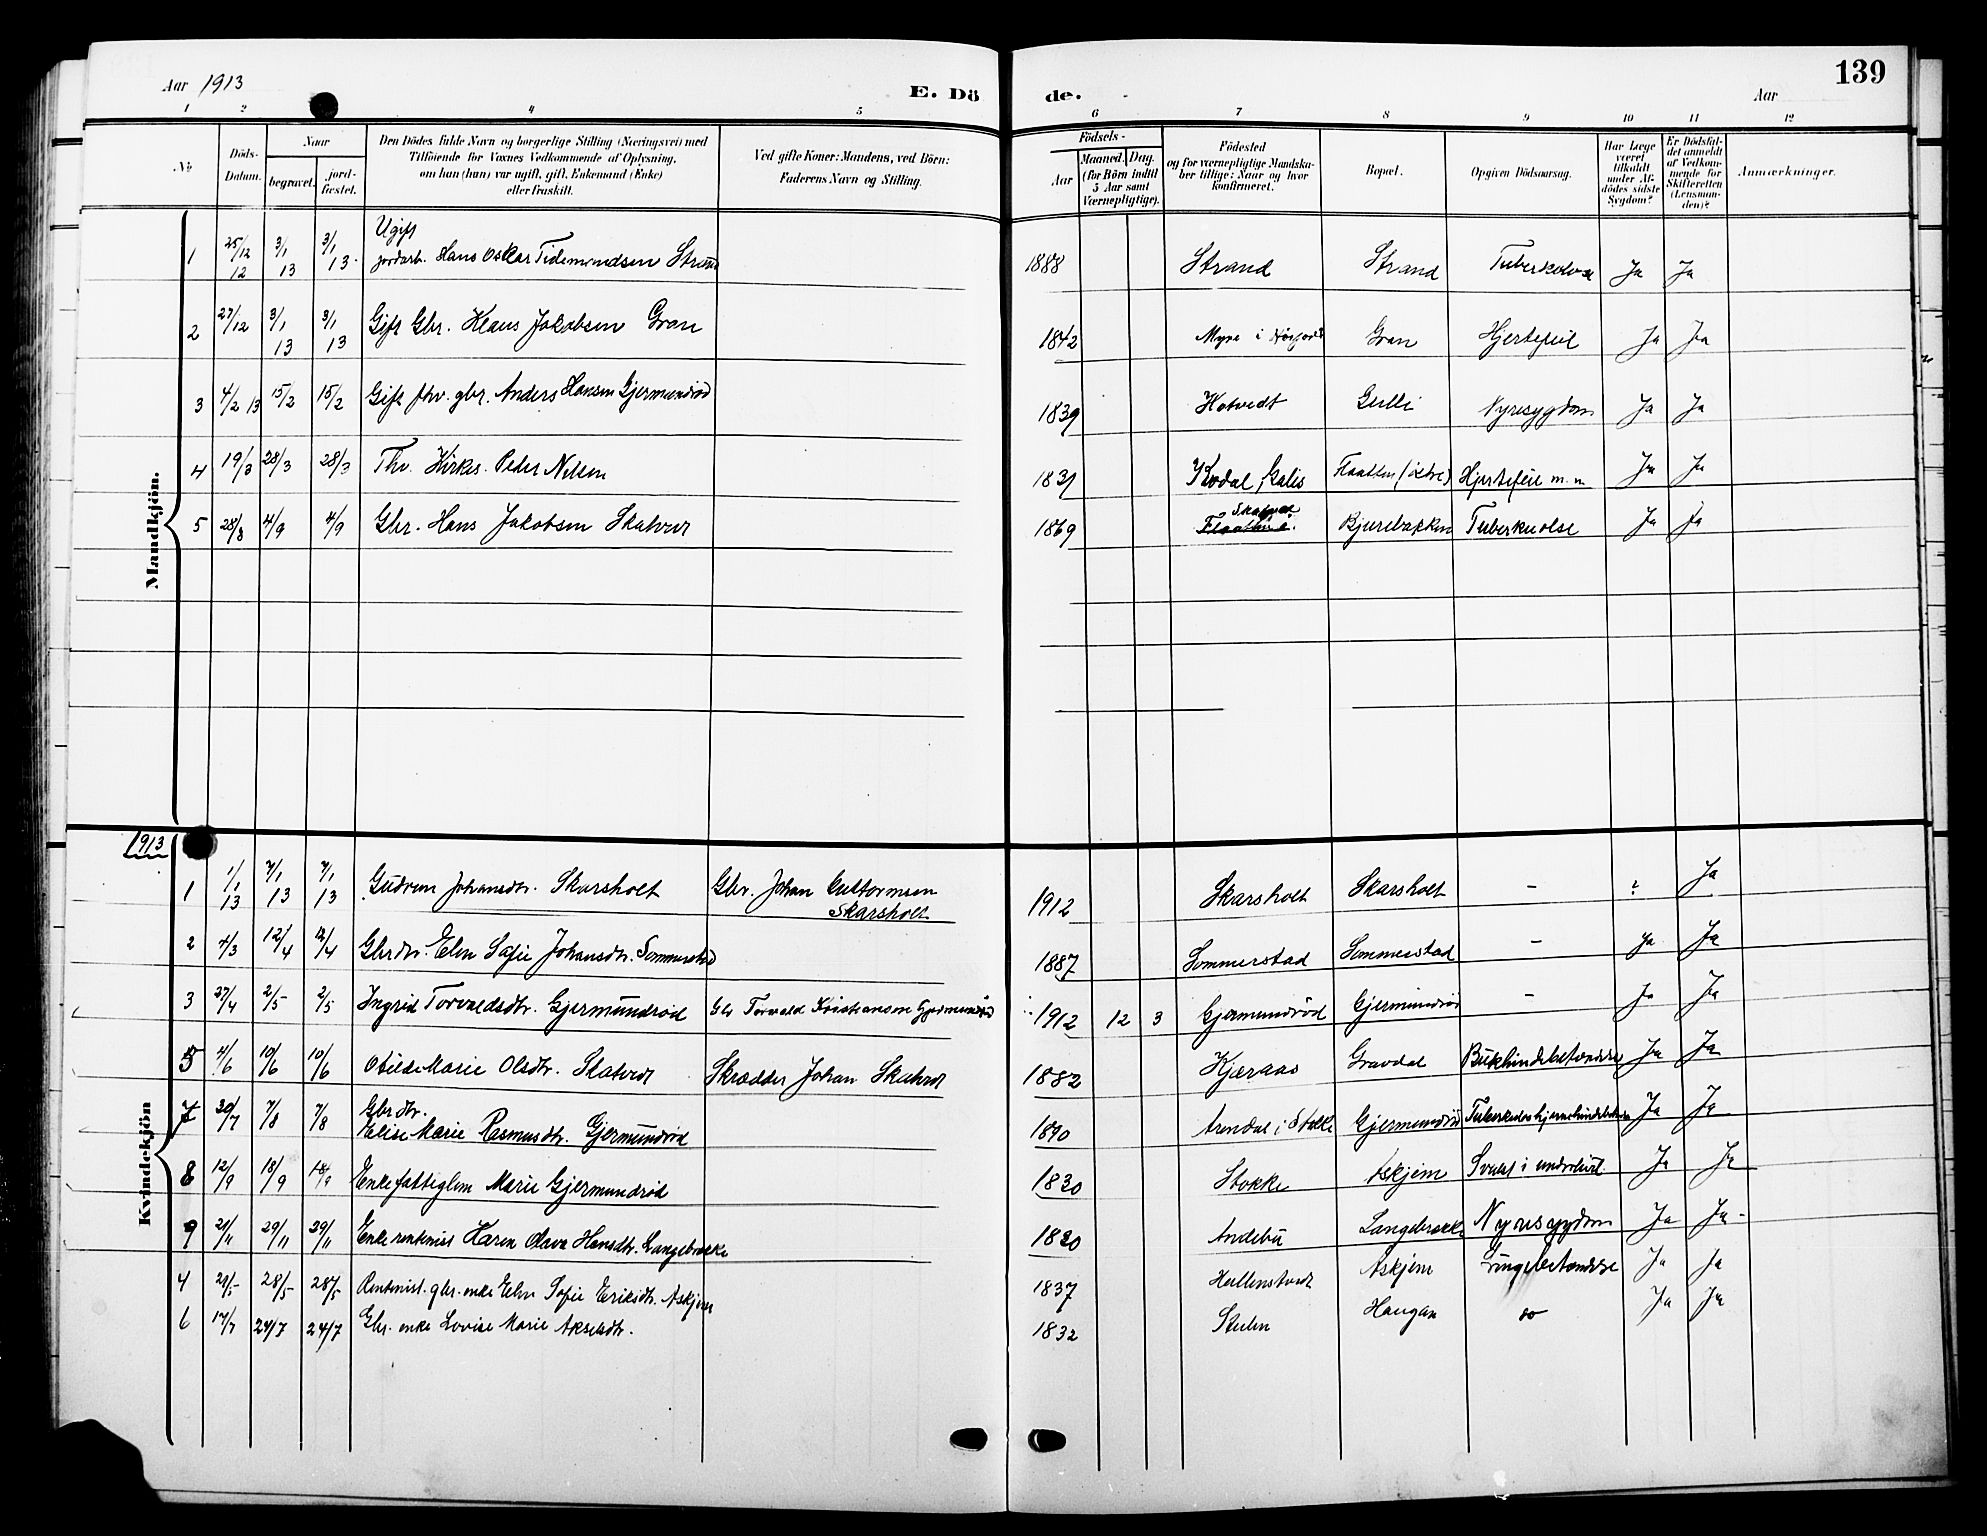 139
Aar 1913
E. Dö
de.
Aar
1 2 3 4 5
6 7 8 9 10 11 12
No
Döds-Datum.
Naar
begravet.
jord-fæstet.
Den Dödes fulde Navn og borgerlige Stilling (Næringsvei) med
Tilföiende for Voxnes Vedkommende af Oplysning,
om hun (han) var ugift, gift, Enkemand (Enke)
eller fraskilt.
Ved gifte Koner: Mandens, ved Börn:
Faderens Navn og Stilling.
Födsels-
Aar
Maaned. Dag.
(for Börn indtil
5 Aar samt
Værnepligtige).
Födested
og for værnepligtige Mandska-
ber tillige: Naar og hvor
konfirmeret.
Bopæl.
Opgiven Dödsaarsag.
Har Læge
været
tilkaldt
under Af-
dödes sidste
Sygdom?
Er Dödsfal-
det anmeldt
af Vedkom-
mende for
Skifteretten
(Lensman-
den)?
Anmærkninger.
Mandkjön.
1 25/12 12 3/1 13 3/1 13. Ugift
jordarb. Hans Oskar Tidemandsen Strand 1888 Strand Strand Tuberkulose Ja Ja
2 27/12 3/1 13 3/1 13 Gift Gbr. Klaus Jakobsen Gran 1842 Myra i Gran Hjertefeil Ja Ja
3 4/2 13 15/2 15/2 Gift fhv. gbr. Anders Hansen Gjermundrød 1839 Hotvedt Gulli Nyresygdom Ja Ja
4 19/3 28/3 28/3 Fhv. Kirkes. Peder Nilsen 1831 Kodal, Flaatten (østre) Hjertefeil m. m Ja Ja
5 28/8 4/9 4/9 Gbr. Hans Jakobsen Skatvedt 1869 Skatvedt
Bjurebakken Tuberkulose Ja Ja
1913
Kvindekjön
1 1/1 13 7/1 13 7/1 13 Gudrun Johansdtr. Skarsholt Gbr. Johan Guttormsen
Skarsholt 1912 Skarsholt Skarsholt - ? Ja
2 4/3 12/4 12/4 Gbrdtr. Elen Sofie Johansdtr. Sommerstad 1887 Sommerstad Sommerstad - Ja Ja
3 27/4 2/5 2/5 Ingrid Torvaldsdtr. Gjermundrød Gbr Torvald Kristiansen Gjermundrød 1912 12 3 Gjermundrød Gjermundrød - Ja Ja
5 4/6 10/6 10/6 Otilde Marie Olsdtr. Skatvedt Skrædder Johan Skatvedt 1882 Kjæraas Gravdal Bukhindebetændelse Ja Ja
7 30/7 7/8 7/8 Gbrdtr.
Elise Marie Rasmusdtr. Gjermundrød 1890 Arendal i Stokke Gjermundrød Ja Ja
8 12/9 18/9 18/9 Enke fattiglem Marie Gjermundrød 1830 Stokke Askjem Svulst i underlivet Ja Ja
9 21/11 29/11 29/11 Enke rentenist Karen Olava Hansdtr. Langebrække 1820 Andebu Langebrække Nyresygdom Ja Ja -
4 28/5 28/5 Rentenist. gbr. enke Elen Sofie Eriksdtr. Askjem 1837 Askjem Lungebetændelse Ja Ja
6 17/7 24/7 24/7 Gbr. enke Lovise Marie Akselsdtr. 1832 Stulen Haugan do Ja Ja